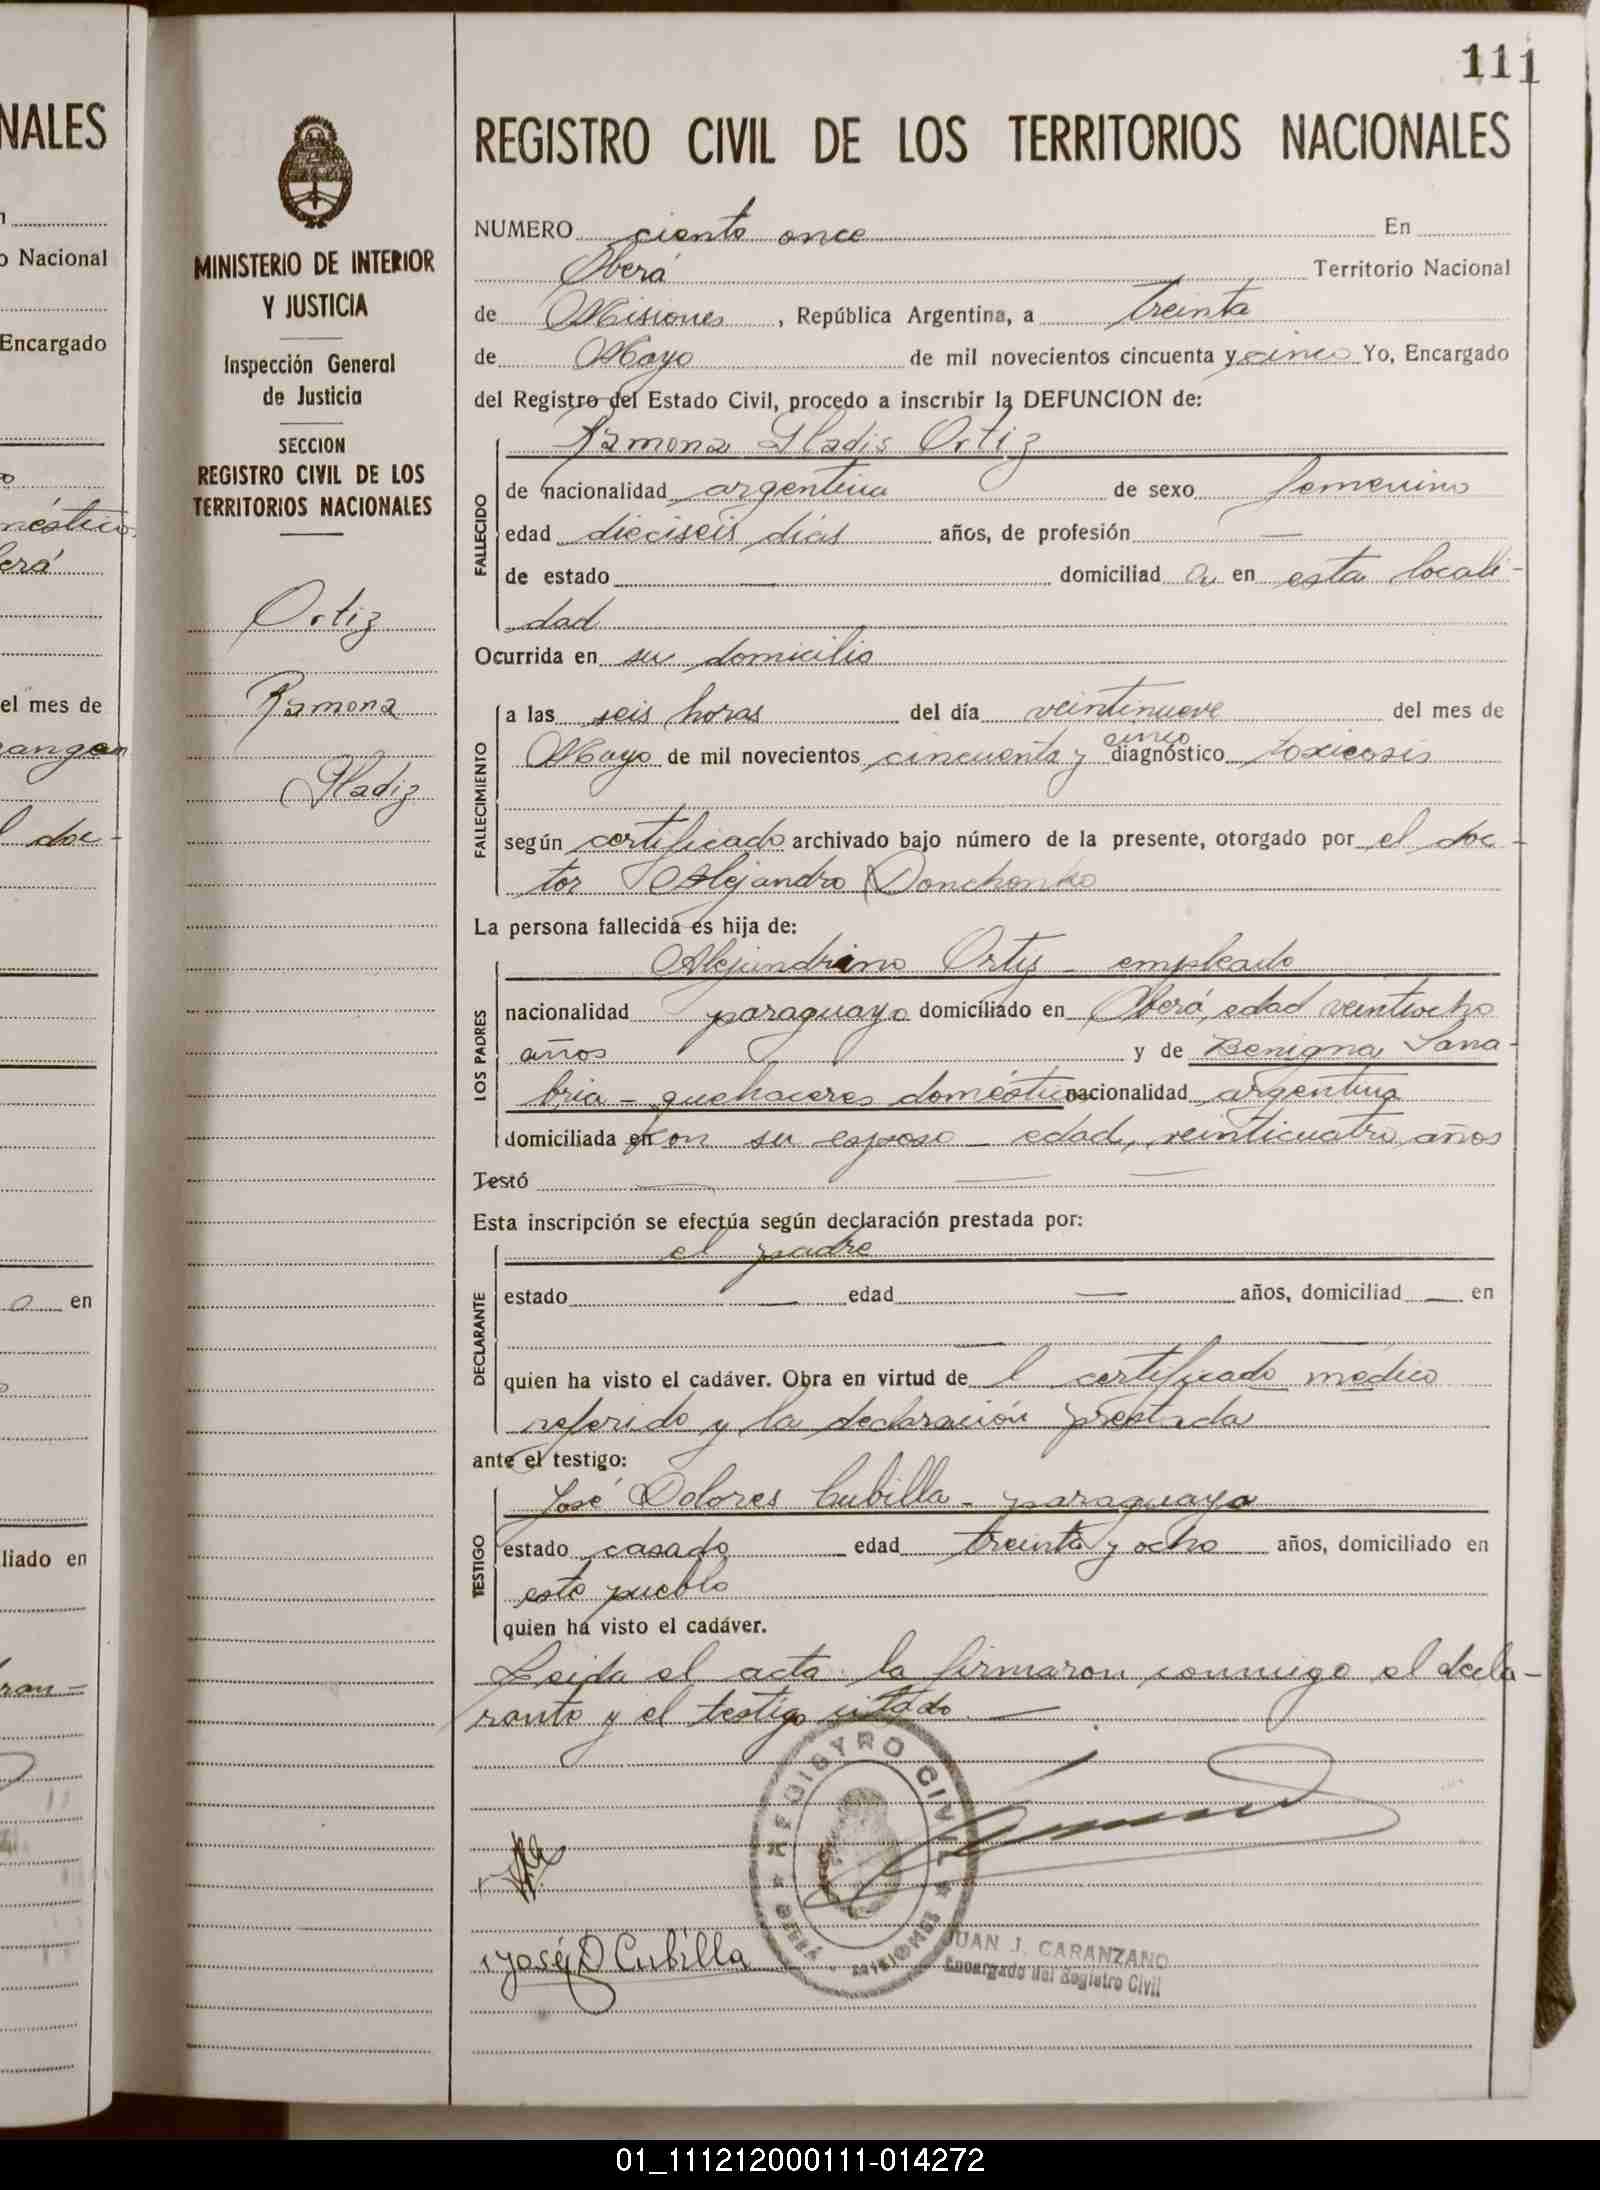 111
NALES
REGISTRO CIVIL DE LOS TERRITORIOS NACIONALES
MINISTERIO DE INTERIOR
Y JUSTICIA
Inspección General
de Justicia
SECCION
REGISTRO CIVIL DE LOS
TERRITORIOS NACIONALES
Ortiz
Ramona
Gladiz
NUMERO ciento once En
Oberá Territorio Nacional
de Misiones, República Argentina, a treinta
de Mayo de mil novecientos cincuenta y cinco Yo, Encargado
del Registro del Estado Civil, procedo a inscribir la DEFUNCION de:
Ramona Gladis Ortiz
FALLECIDO
de nacionalidad argentina de sexo femenino
edad dieciseis días años, de profesión —
de estado — domiciliad a en esta locali-
dad
Ocurrida en su domicilio
FALLECIMIENTO
a las seis horas del día veintinueve del mes de
Mayo de mil novecientos cincuenta y cinco diagnóstico toxicosis
según certificado archivado bajo número de la presente, otorgado por el doc-
tor Alejandro Donchenko
La persona fallecida es hija de:
LOS PADRES
Alejandrino Ortiz - empleado
nacionalidad paraguayo domiciliado en Oberá, edad veintiocho
años y de Benigna Sana-
bria - quehaceres domésticos nacionalidad argentina
domiciliada en con su esposo - edad, veinticuatro años
Testó — — —
Esta inscripción se efectúa según declaración prestada por:
DECLARANTE
el padre
estado — edad — años, domiciliad — en
— —
quien ha visto el cadáver. Obra en virtud de l certificado médico
referido y la declaración prestada
ante el testigo:
TESTIGO
José Dolores Cubilla - paraguayo
estado casado edad treinta y ocho años, domiciliado en
este pueblo
quien ha visto el cadáver.
Leida el acta la firmaron conmigo el decla-
rante y el testigo citado —
REGISTRO CIVIL
OBERÁ MISIONES
José D Cubilla
JUAN J. CARANZANO
Encargado del Registro Civil
o Nacional
Encargado
el mes de
l doc-
en
liado en
01_111212000111-014272